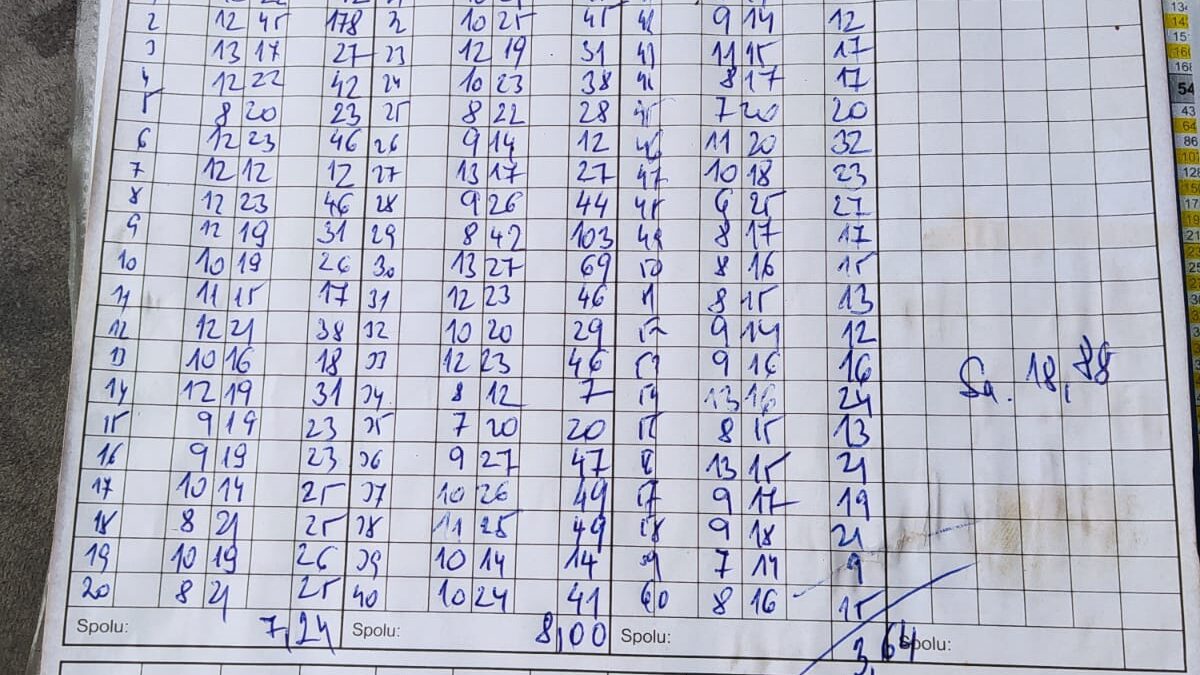 2 12 45 178 10 25 45 9 14 12
3 13 17 27 23 12 19 31 43 11 15 17
4 12 22 42 24 10 23 38 8 17 17
5 8 20 23 25 8 22 28 7 20 20
6 12 23 46 26 9 14 12 46 11 20 32
7 12 12 12 27 13 17 27 47 10 18 23
8 12 23 46 28 9 26 44 25 27
9 12 19 31 29 8 42 103 49 8 17 17
10 10 19 26 30 13 27 69 50 8 16 15
11 11 15 17 31 12 23 46 8 15 13
12 12 21 38 32 10 20 29 9 14 12
13 10 16 18 33 12 23 46 9 16 16
14 12 19 31 34 8 12 7 13 16 24
15 9 19 23 35 7 20 20 8 15 13
16 9 19 23 36 9 27 47 13 15 21
17 10 14 25 37 10 26 49 57 9 17 19
18 8 21 25 38 11 25 49 58 9 18 21
19 10 19 26 39 10 14 14 7 14 9
20 8 21 25 40 10 24 41 60 8 16 15
Sa. 18,88
Spolu: 7,24 Spolu: 8,00 Spolu: 3,64 Spolu: